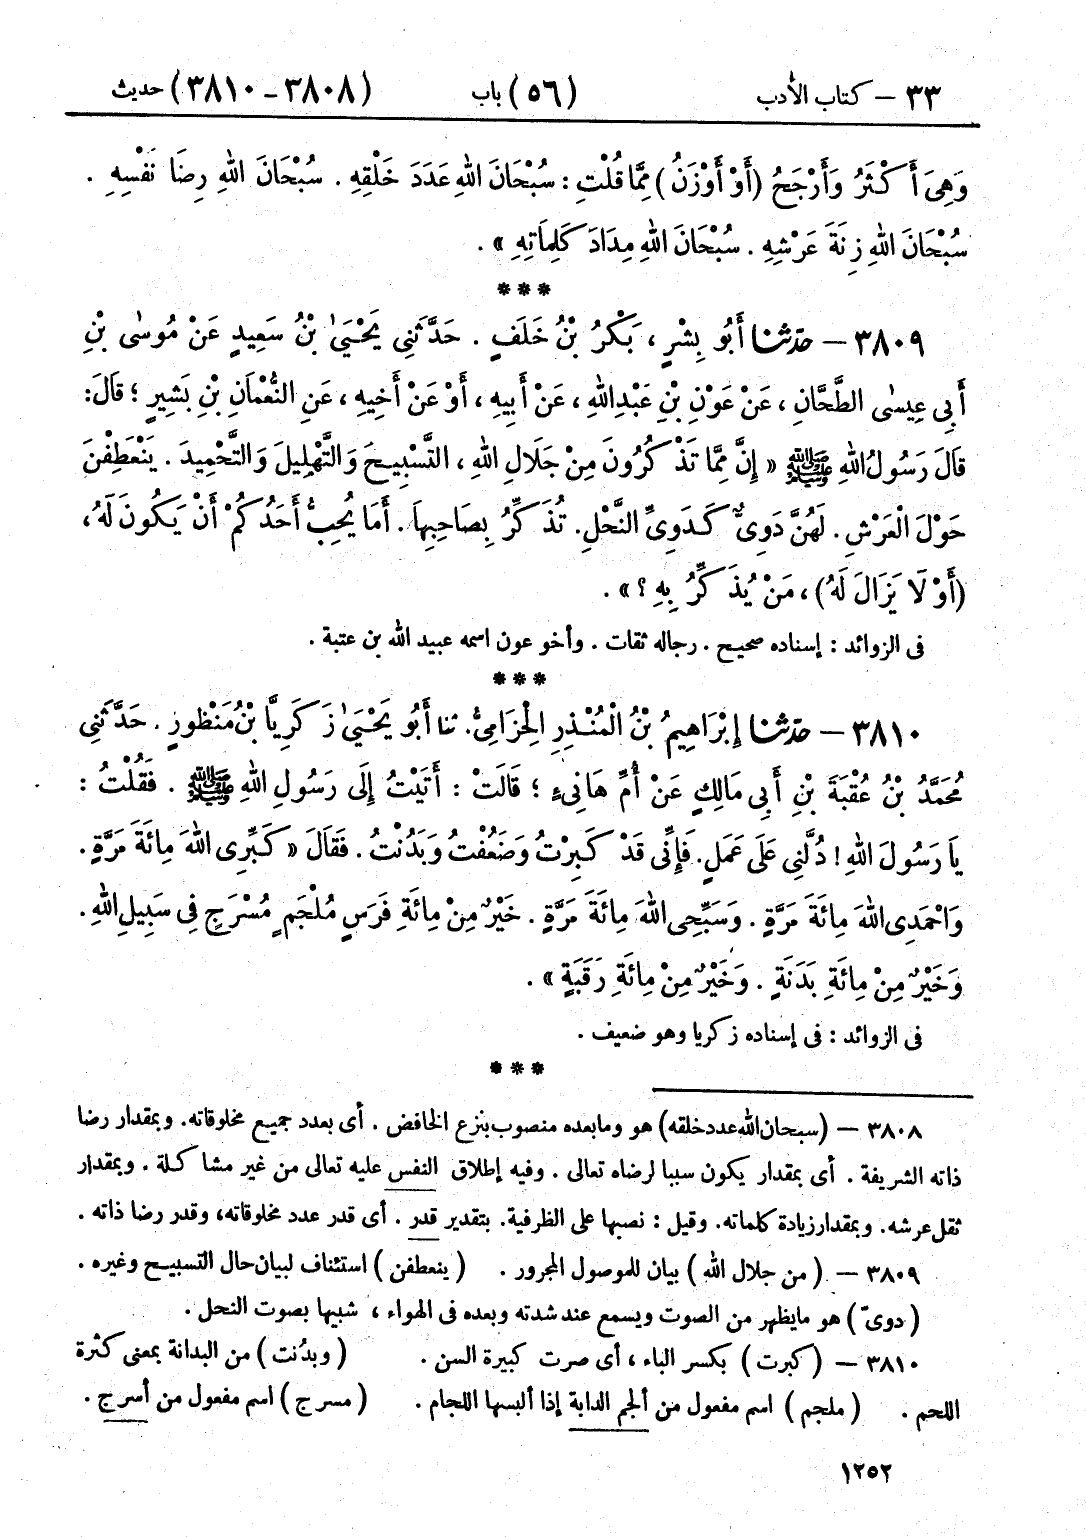 ٣٣ — كتاب الأدب (٥٦) باب (٣٨٠٨ - ٣٨١٠) حديث
وَهِىَ أَكْثَرُ وَأَرْجَحُ (أَوْ أَوْزَنُ) مِمَّا قُلْتِ : سُبْحَانَ اللهِ عَدَدَ خَلْقِهِ . سُبْحَانَ اللهِ رِضَا نَفْسِهِ .
سُبْحَانَ اللهِ زِنَةَ عَرْشِهِ . سُبْحَانَ اللهِ مِدَادَ كَلِمَاتِهِ » .
***
٣٨٠٩ — حدّثنا أَبُو بِشْرٍ ، بَكْرُ بْنُ خَلَفٍ . حَدَّثَنِى يَحْيَىٰ بْنُ سَعِيدٍ عَنْ مُوسٰى بْنِ
أَبِى عِيسٰى الطَّحَّانِ ، عَنْ عَوْنِ بْنِ عَبْدِ اللهِ ، عَنْ أَبِيهِ ، أَوْ عَنْ أَخِيهِ ، عَنِ النُّعْمَانِ بْنِ بَشِيرٍ ؛ قَالَ :
قَالَ رَسُولُ اللهِ ﷺ « إِنَّ مِمَّا تَذْكُرُونَ مِنْ جَلَالِ اللهِ ، التَّسْبِيحَ وَالتَّهْلِيلَ وَالتَّحْمِيدَ . يَنْعَطِفْنَ
حَوْلَ الْعَرْشِ . لَهُنَّ دَوِىٌّ كَدَوِىِّ النَّحْلِ . تُذَكِّرُ بِصَاحِبِهَا . أَمَا يُحِبُّ أَحَدُكُمْ أَنْ يَكُونَ لَهُ ،
(أَوْ لَا يَزَالَ لَهُ) ، مَنْ يُذَكِّرُ بِهِ ؟ » .
فى الزوائد : إسناده صحيح . رجاله ثقات . وأخو عون اسمه عبيد الله بن عتبة .
***
٣٨١٠ — حدّثنا إِبْرَاهِيمُ بْنُ الْمُنْذِرِ الْحِزَامِىُّ . ثنا أَبُو يَحْيَىٰ زَكَرِيَّا بْنُ مَنْظُورٍ . حَدَّثَنِى
مُحَمَّدُ بْنُ عُقْبَةَ بْنِ أَبِى مَالِكٍ عَنْ أُمِّ هَانِىءٍ ؛ قَالَتْ : أَتَيْتُ إِلَى رَسُولِ اللهِ ﷺ . فَقُلْتُ :
يَا رَسُولَ اللهِ ! دُلَّنِى عَلَى عَمَلٍ . فَإِنِّى قَدْ كَبِرْتُ وَضَعُفْتُ وَبَدُنْتُ . فَقَالَ « كَبِّرِى اللهَ مِائَةَ مَرَّةٍ .
وَاحْمَدِى اللهَ مِائَةَ مَرَّةٍ . وَسَبِّحِى اللهَ مِائَةَ مَرَّةٍ . خَيْرٌ مِنْ مِائَةِ فَرَسٍ مُلْجَمٍ مُسْرَجٍ فِى سَبِيلِ اللهِ .
وَخَيْرٌ مِنْ مِائَةِ بَدَنَةٍ . وَخَيْرٌ مِنْ مِائَةِ رَقَبَةٍ » .
فى الزوائد : فى إسناده زكريا وهو ضعيف .
***
٣٨٠٨ — (سبحان الله عدد خلقه) هو ومابعده منصوب بنزع الخافض . أى بعدد جميع مخلوقاته. وبمقدار رضا
ذاته الشريفة . أى بمقدار يكون سببا لرضاه تعالى . وفيه إطلاق النفس عليه تعالى من غير مشاكلة . وبمقدار
ثقل عرشه. وبمقدار زيادة كلماته. وقيل : نصبها على الظرفية. بتقدير قدر . أى قدر عدد مخلوقاته، وقدر رضا ذاته .
٣٨٠٩ — ( من جلال الله ) بيان للموصول المجرور . ( ينعطفن ) استئناف لبيان حال التسبيح وغيره .
( دوىّ ) هو مايظهر من الصوت ويسمع عند شدته وبعده فى الهواء ، شبيها بصوت النحل .
٣٨١٠ — ( كبرت ) بكسر الباء ، أى صرت كبيرة السن . ( وبدُنت ) من البدانة بمعنى كثرة
اللحم . ( ملجم ) اسم مفعول من ألجم الدابة إذا ألبسها اللجام . ( مسرج ) اسم مفعول من أسرج .
١٢٥٢